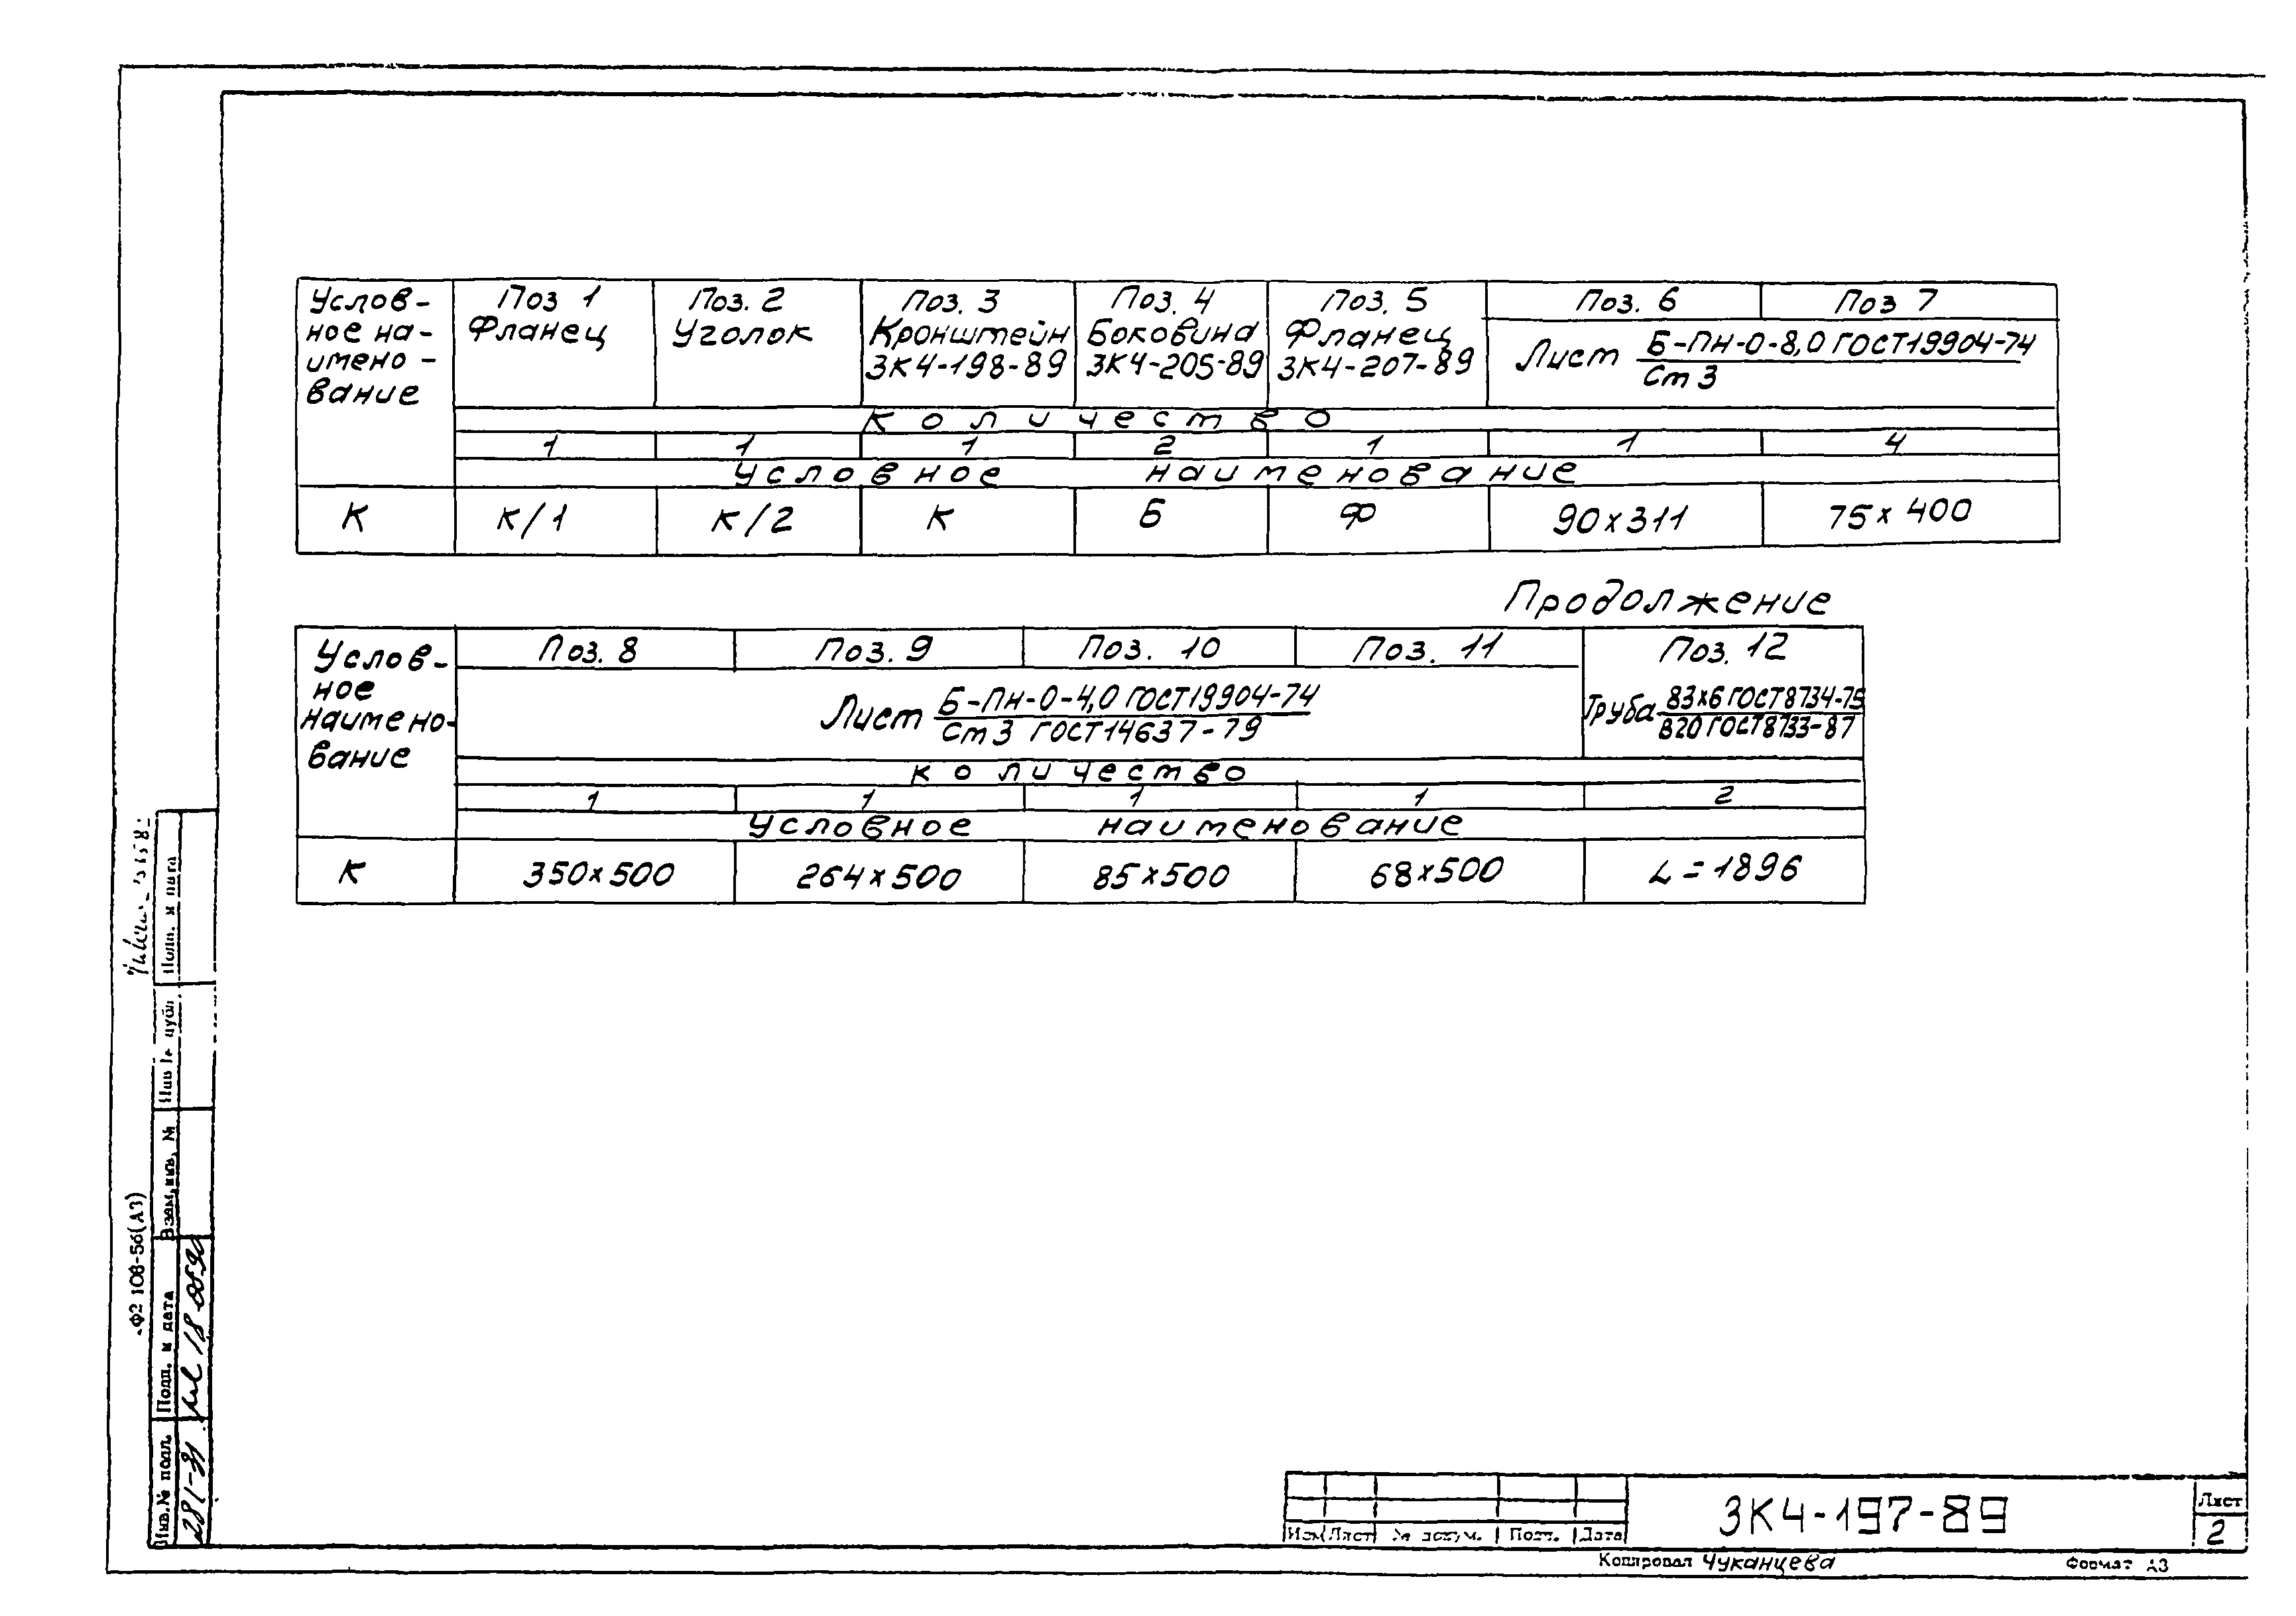 Услов-
ное на-
имено-
вание
Поз 1
Фланец
Поз. 2
Уголок
Поз. 3
Кронштейн
ЗК4-198-89
Поз. 4
Боковина
ЗК4-205-89
Поз. 5
Фланец
ЗК4-207-89
Поз. 6
Поз 7
Лист Б-ПН-О-8,0 ГОСТ19904-74
Ст 3
количество
1 1 1 2 1 1 4
Условное наименование
К К/1 К/2 К Б Ф 90х311 75х400
Продолжение
Услов-
ное
наимено-
вание
Поз. 8 Поз. 9 Поз. 10 Поз. 11 Поз. 12
Лист Б-ПН-О-4,0 ГОСТ19904-74
Ст 3 ГОСТ14637-79
Труба 83х6 ГОСТ8734-75
В20 ГОСТ8733-87
количество
1 1 1 1 2
Условное наименование
К 350х500 264х500 85х500 68х500 L=1896
Подп. и дата
Взам. инв. №
Подп. и дата
Инв.№ подл.
281-91
18
Ф2 108-5б(А3)
Изм Лист № докум. Подп. Дата
ЗК4-197-89
Лист
2
Копировал Чуканцева
Формат А3